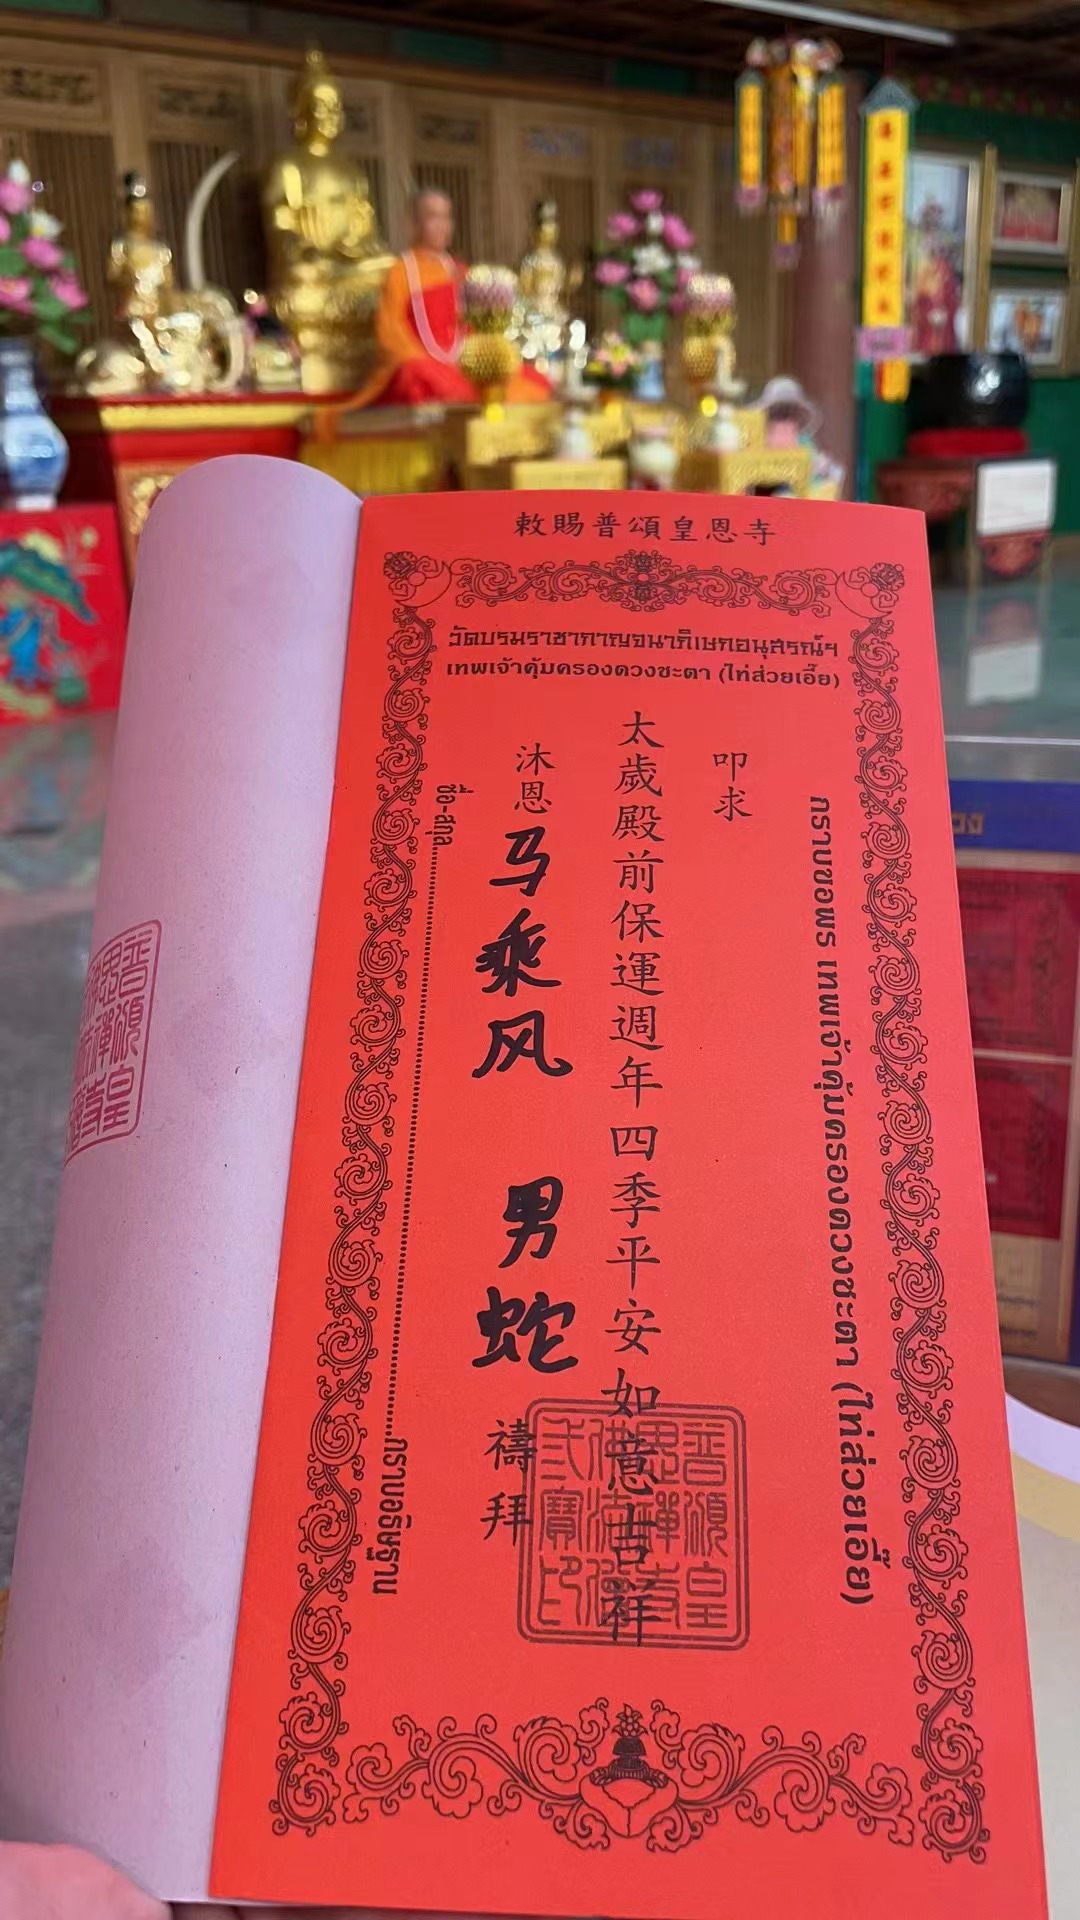 敕賜普頌皇恩寺
วัดบรมราชากาญจนาภิเษกอนุสรณ์ฯ
เทพเจ้าคุ้มครองดวงชะตา (ไท่ส่วยเอี๊ย)
กราบขอพร เทพเจ้าคุ้มครองดวงชะตา (ไท่ส่วยเอี๊ย)
叩求
太歲殿前保運週年四季平安如意吉祥
沐恩 马乘风 男蛇 禱拜
ชื่อ-สกุล.....กราบอธิษฐาน